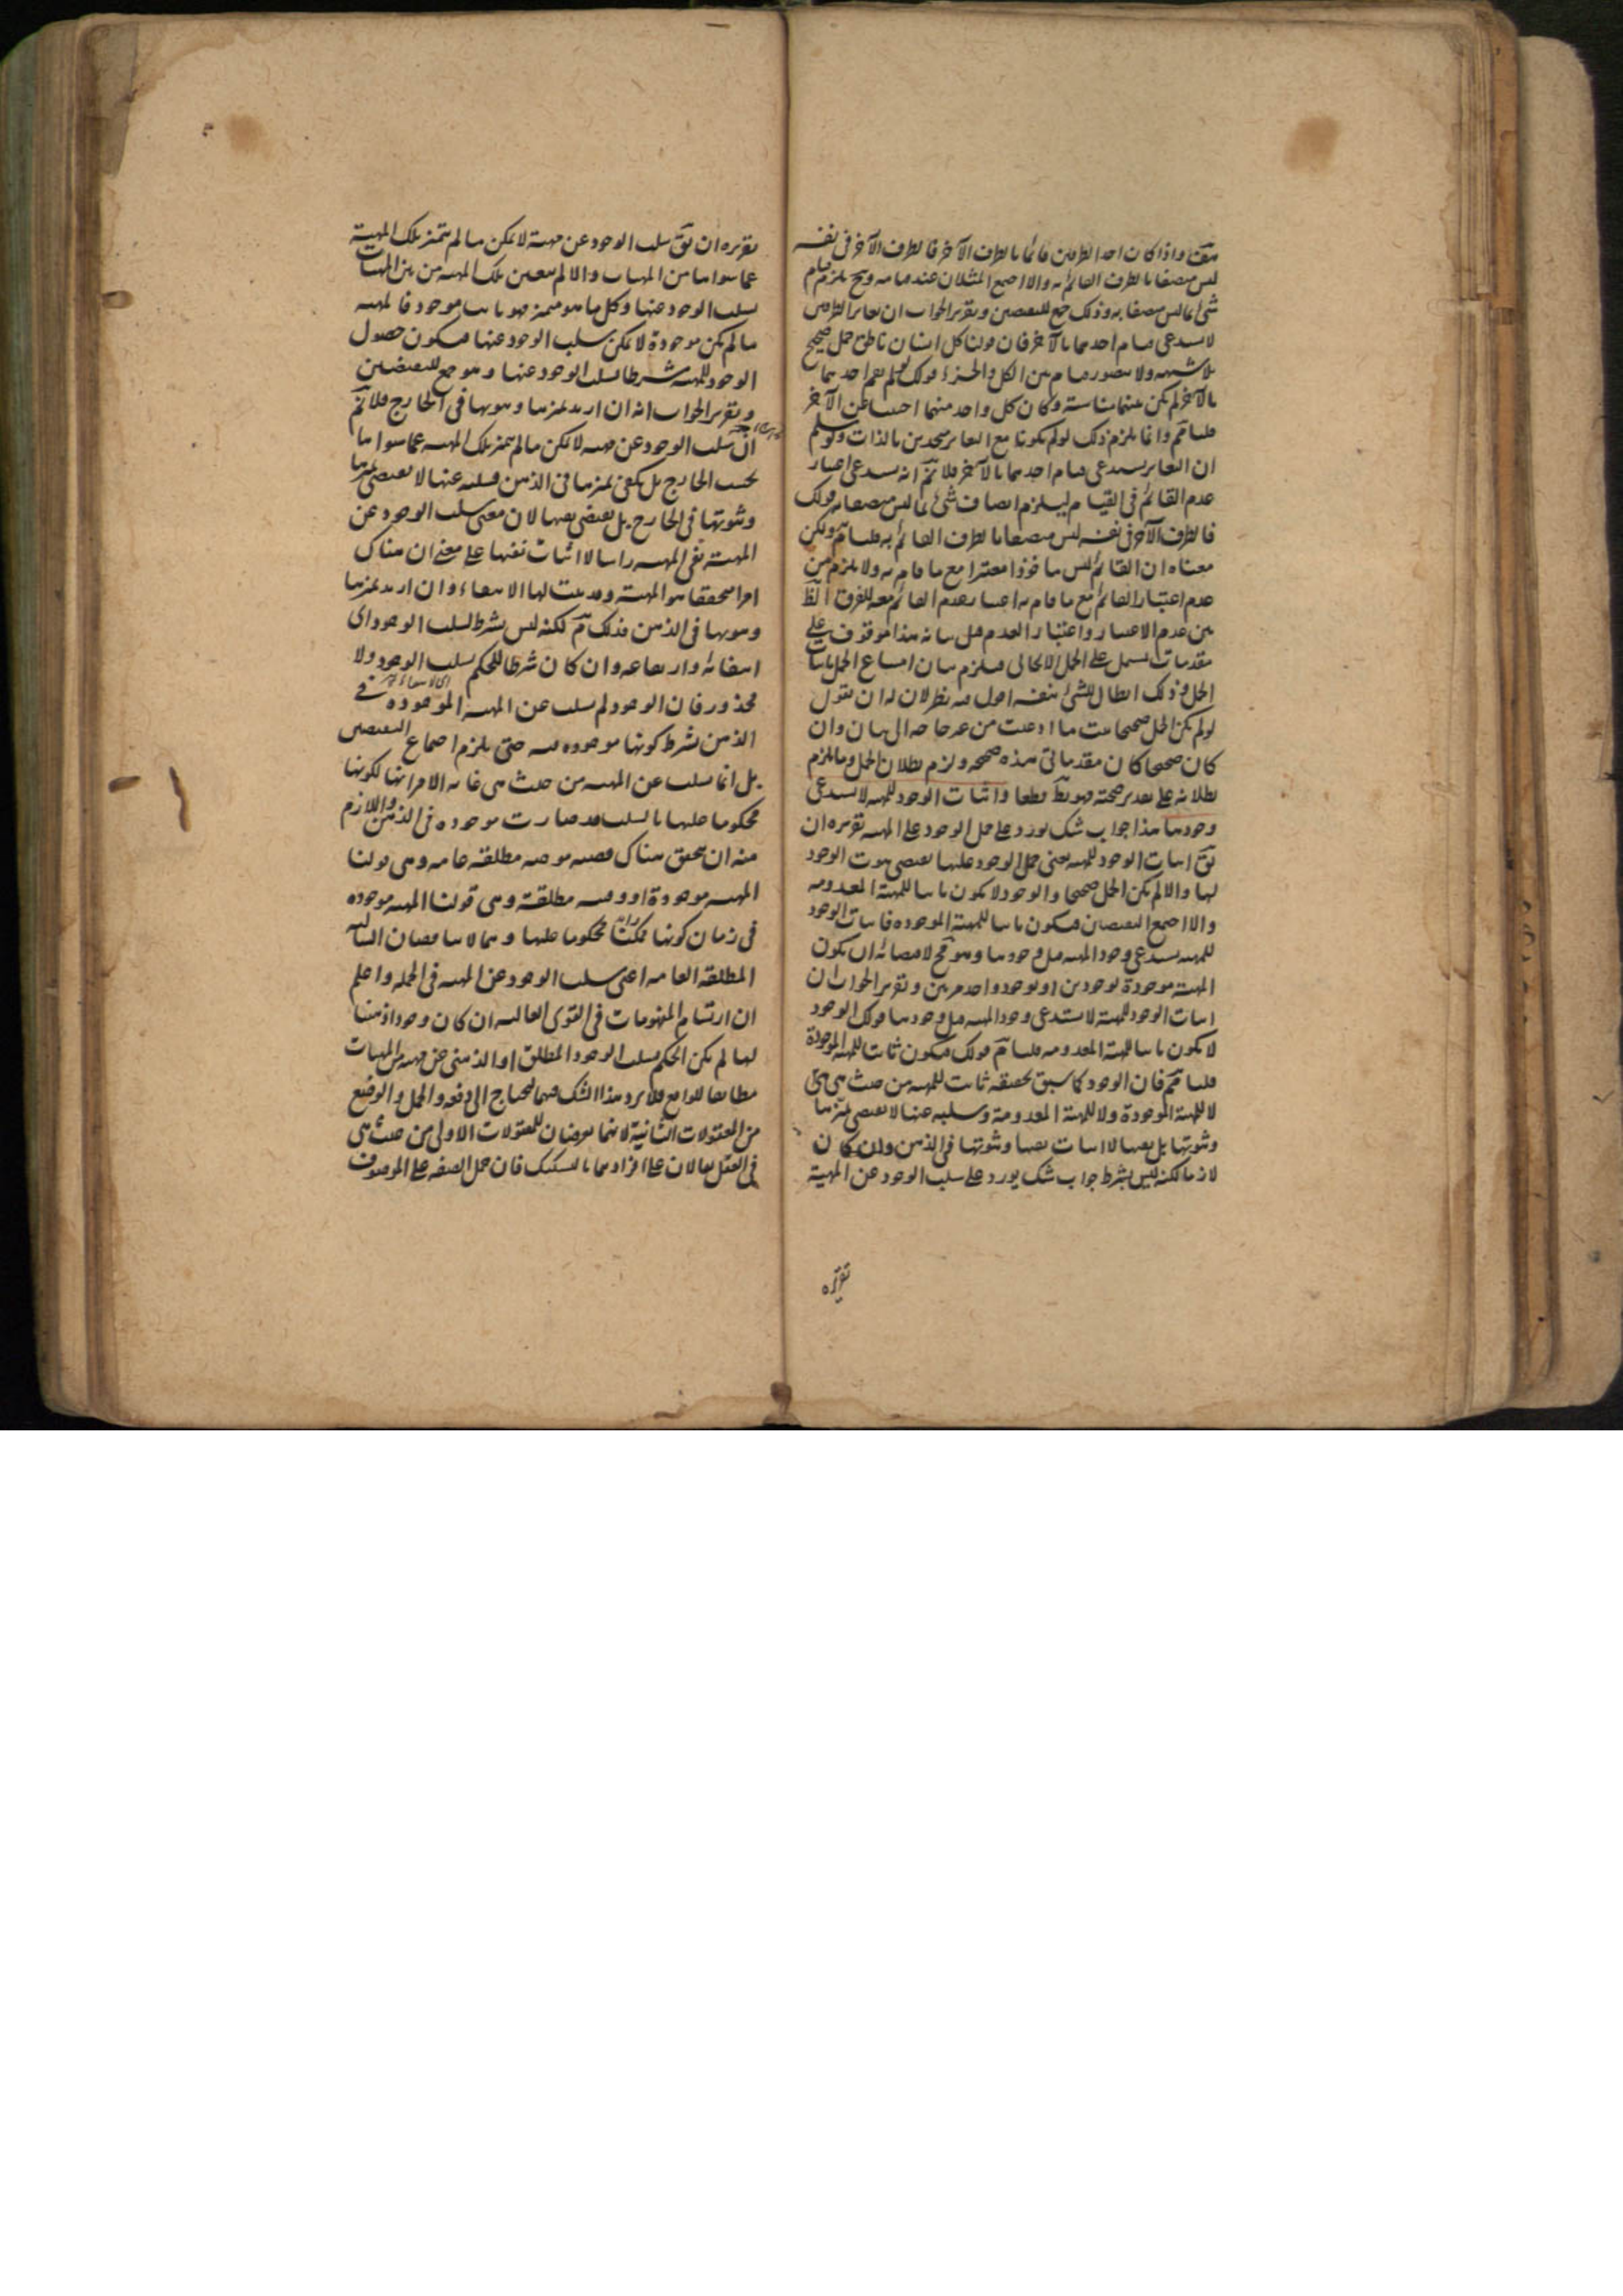 واذا كان احد الطرفين قائما بالطرف الآخر فالطرف الآخر فى نفسه
ليس متصفا بالطرف القائم به والا اجتمع المثلان عند قيامه وح يلزم قيام
شئ بما ليس متصفا به وذلك جمع للنقيضين وتقرير الجواب ان تغاير الطرفين
لا يستدعى قيام احدهما بالآخر فان قولنا كل انسان ناطق حمل صحيح
بلا شبهه ولا يتصور قيام بين الكل والجزء قولك لو لم يقم احدهما
بالآخر لم يكن بينهما مناسبة وكان كل واحد منهما اجنبيا عن الآخر
قلنا مم وانما يلزم ذلك لو لم يكونا مع التغاير متحدين بالذات ولو سلم
ان التغاير يستدعى قيام احدهما بالآخر فلا نم انه يستدعى اعتبار
عدم القائم فى القيام ليلزم اتصاف شئ بما ليس متصفا به قولك
فالطرف الآخر فى نفسه ليس متصفا بالطرف القائم به قلنا مم ولكن
معناه ان القائم ليس مأخوذا معتبرا مع ما قام به ولا يلزم من
عدم اعتبار القائم مع ما قام به اعتبار عدم القائم معه للفرق الظ
بين عدم الاعتبار واعتبار العدم قيل بيانه هذا موقوف على
مقدمات تشتمل على الحمل الايجابى فيلزم بيان امتناع الحمل باثبات
الحمل وذلك ابطال للشئ بنفسه اقول فيه نظر لان له ان يقول
لو لم يكن الحمل صحيحا ثبت ما ادعيت من غير حاجة الى بيان وان
كان صحيحا كان مقدماتى هذه صحيحه ولزم بطلان الحمل وما يلزم
بطلانه على تقدير صحته فهو بط قطعا واثبات الوجود للمهية لا يستدعى
وجودها هذا جواب شك يورد على حمل الوجود على المهية تقريره ان
يق اثبات الوجود للمهية يعنى حمل الوجود عليها يقتضى ثبوت الوجود
لها والا لم يكن الحمل صحيحا والوجود لا يكون ثابتا للمهية المعدومه
والا اجتمع النقيضان فيكون ثابتا للمهية الموجوده فاثبات الوجود
للمهية يستدعى وجود المهية قبل وجودها وهو مح لاقتضائه ان يكون
المهية موجودة بوجودين او بوجود واحد مرتين وتقرير الجواب ان
اثبات الوجود للمهية لا يستدعى وجود المهية قبل وجودها قولك الوجود
لا يكون ثابتا للمهية المعدومه قلنا مم قولك فيكون ثابتا للمهية الموجودة
قلنا مم فان الوجود كما سبق تحقيقه ثابت للمهية من حيث هى هى
لا للمهية الموجودة ولا للمهية المعدومة وسلبه عنها لا يقتضى تميزها
وثبوتها بل نفيها لا اثبات نفيها وثبوتها فى الذهن وان كان
لازما لكنه ليس بشرط جواب شك يورد على سلب الوجود عن المهية
تقريره
تقريره ان يق سلب الوجود عن مهية لا يمكن ما لم يتميز تلك المهية
عما سواها من المهيات والا لم يتعين تلك المهية من بين المهيات
بسلب الوجود عنها وكل ما هو متميز فهو ثابت موجود فالمهية
ما لم يكن موجودة لا يمكن سلب الوجود عنها فيكون حصول
الوجود للمهية شرطا لسلب الوجود عنها وهو جمع للنقيضين
وتقرير الجواب انه ان اريد تميزها وثبوتها فى الخارج فلا نم
ان سلب الوجود عن مهية لا يمكن ما لم يتميز تلك المهية عما سواها
بحسب الخارج بل يكفى تميزها فى الذهن فسلبه عنها لا يقتضى تميزها
وثبوتها فى الخارج بل يقتضى نفيها لان معنى سلب الوجود عن
المهية نفى المهية راسا لا اثبات نفيها على معنى ان هناك
امرا متحققا هو المهية وقد ثبت لها الانتفاء وان اريد تميزها
وثبوتها فى الذهن فذلك مم لكنه ليس بشرط لسلب الوجود اى
انتفائه وارتفاعه وان كان شرطا للحكم بسلب الوجود ولا
محذور فان الوجود لم يسلب عن المهية الموجوده فى
الذهن بشرط كونها موجوده فيه حتى يلزم اجتماع النقيضين
بل انما سلب عن المهية من حيث هى غاية الامر انها لكونها
محكوما عليها بالسلب قد صارت موجوده فى الذهن واللازم
منه ان يتحقق هناك قضية موجبه مطلقه عامه وهى قولنا
المهية موجودة او وقتيه مطلقة وهى قولنا المهية موجوده
فى زمان كونها محكوما عليها وهما لا يناقضان السالبه
المطلقه العامه اعنى سلب الوجود عن المهية فى الجمله واعلم
ان ارتسام المفهومات فى القوى العالية ان كان وجودا ذهنيا
لها لم يكن الحكم بسلب الوجود المطلق او الذهنى عن مهية من المهيات
مطابقا للواقع فلا يرد هذا الشك فيهما ليحتاج الى دفعه والحمل والوضع
من المعقولات الثانية لانهما يعرضان للمعقولات الاولى من حيث هى
فى العقل يقالان على افرادهما بالتشكيك فان حمل الصفه على الموصوف